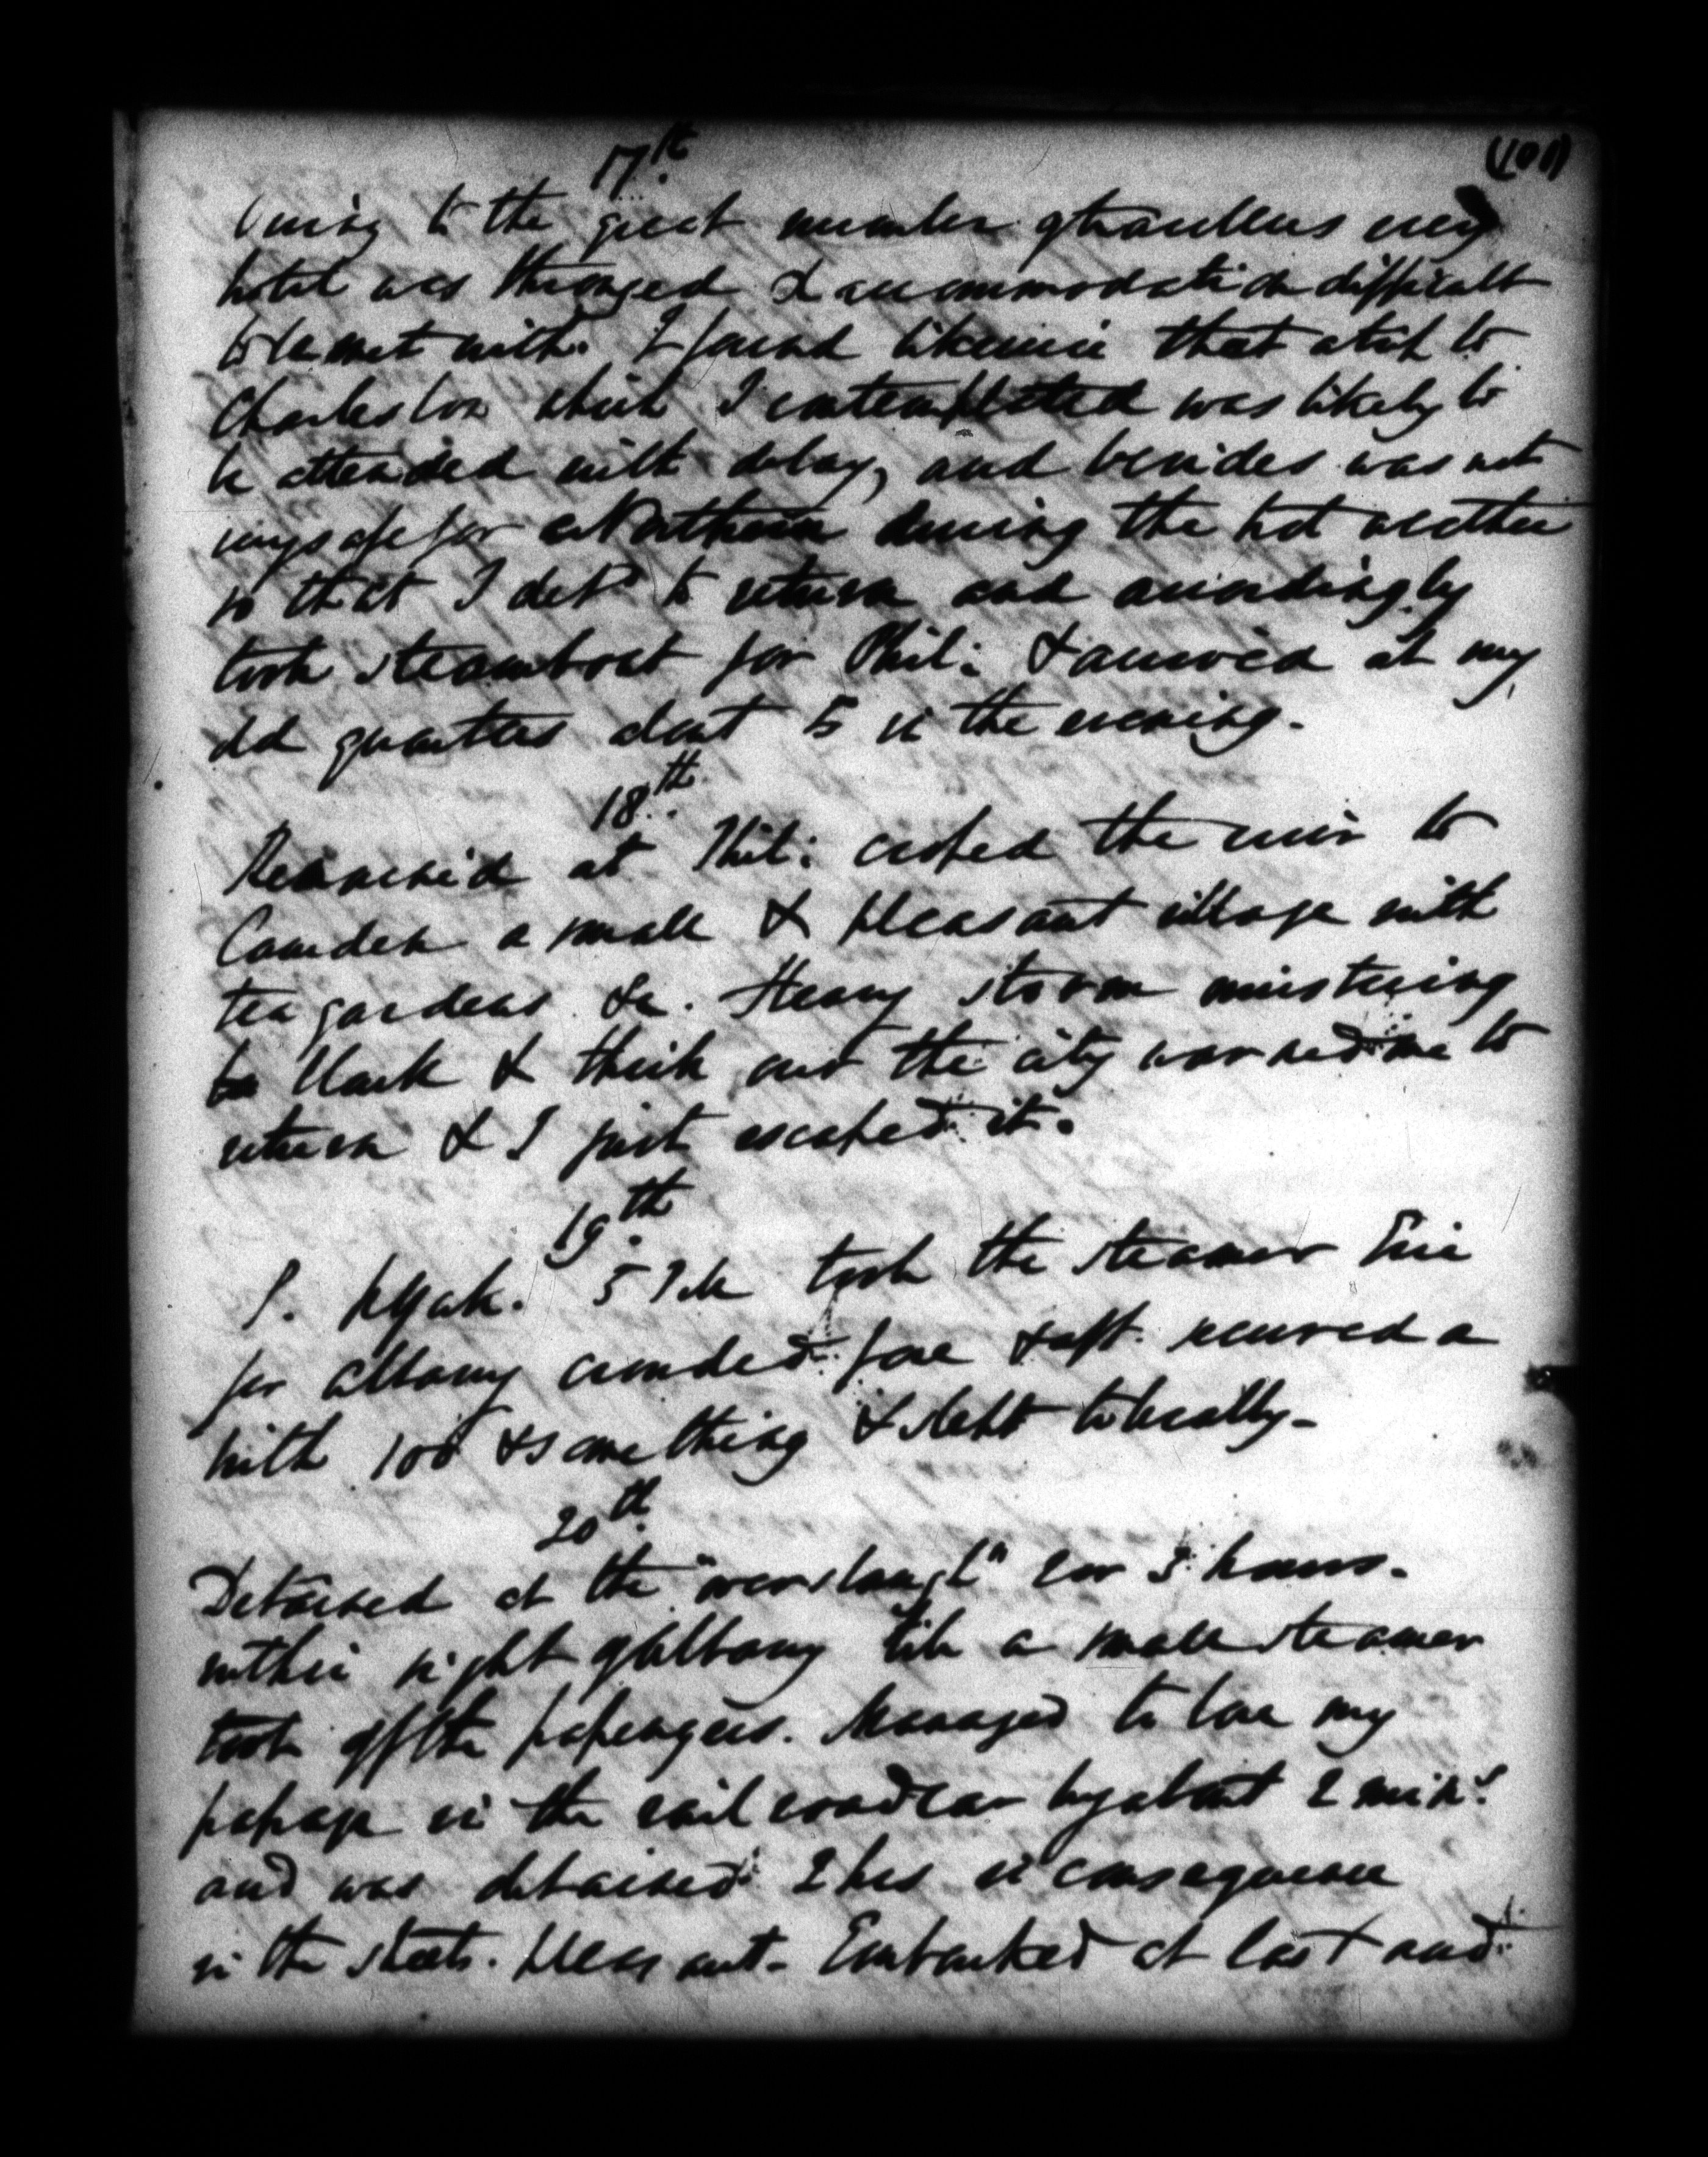 (101)
17th.
Owing to the great number of travellers every
hotel was thronged & accommodation difficult
to be met with. I found likewise that a trip to
Charleston which I contemplated was likely to
be attended with delay, and besides was not
very safe for a Northern during the hot weather
so that I detd to return and accordingly
took steamboat for Phil: & arrived at my
old quarters about 5 in the evening.
18th.
Remained at Phil: crossed the river to
Camden a small & pleasant village with
tea gardens &c. Heavy storm mustering
black & thick over the city warned me to
return & I just escaped it.
19th.
P. 5 PM took the steamer Erie
for Albany crowded fore & aft. secured a
with 100 & something & slept tolerably.
20th.
Detained at the "overslaugh" 2 or 3 hours.
within sight of Albany till a small steamer
took off the passengers. Managed to lose my
passage in the rail road car by about 2 mins.
and was detained 2 hrs in consequence
in the streets. Pleasant. Embarked at last and